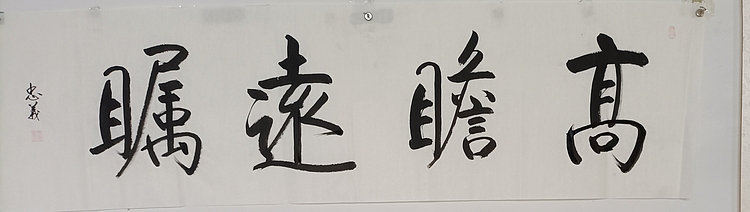 髙瞻遠矚
忠義